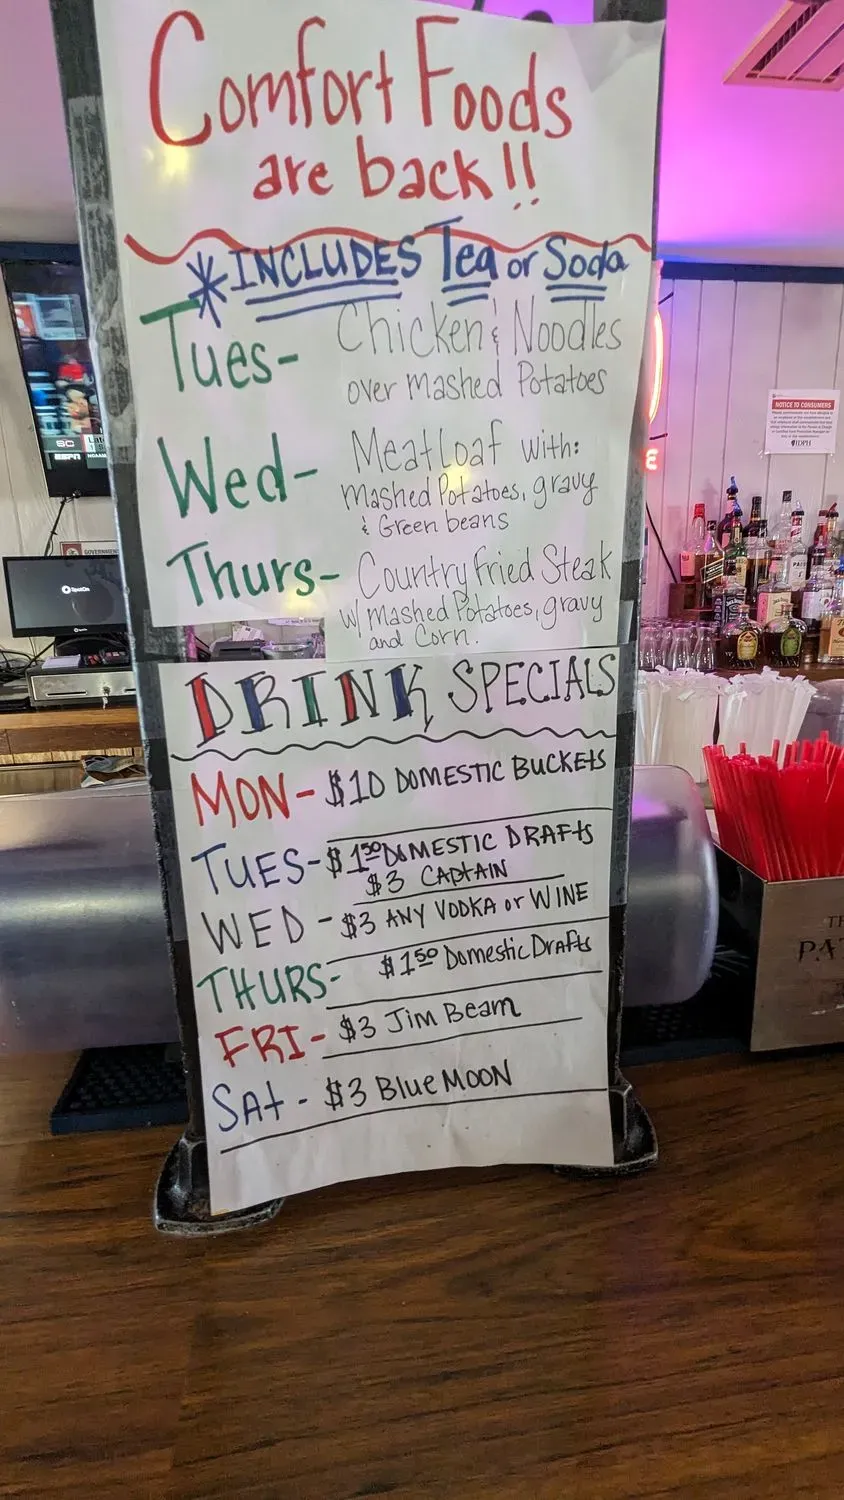 Comfort Foods
are back!!
*INCLUDES Tea or Soda
Tues- Chicken & Noodles
over mashed Potatoes
Wed- Meatloaf with:
mashed Potatoes, gravy
& Green beans
Thurs- Country Fried Steak
w/ mashed Potatoes, gravy
and Corn.
DRINK SPECIALS
MON- $10 DOMESTIC BUCKETS
TUES- $1.50 DOMESTIC DRAFTS
$3 CAPTAIN
WED - $3 ANY VODKA or WINE
THURS- $1.50 Domestic Drafts
FRI- $3 Jim Beam
SAt - $3 Blue MOON
NOTICE TO CONSUMERS
IDPH
SpotOn
ESPN
PAT